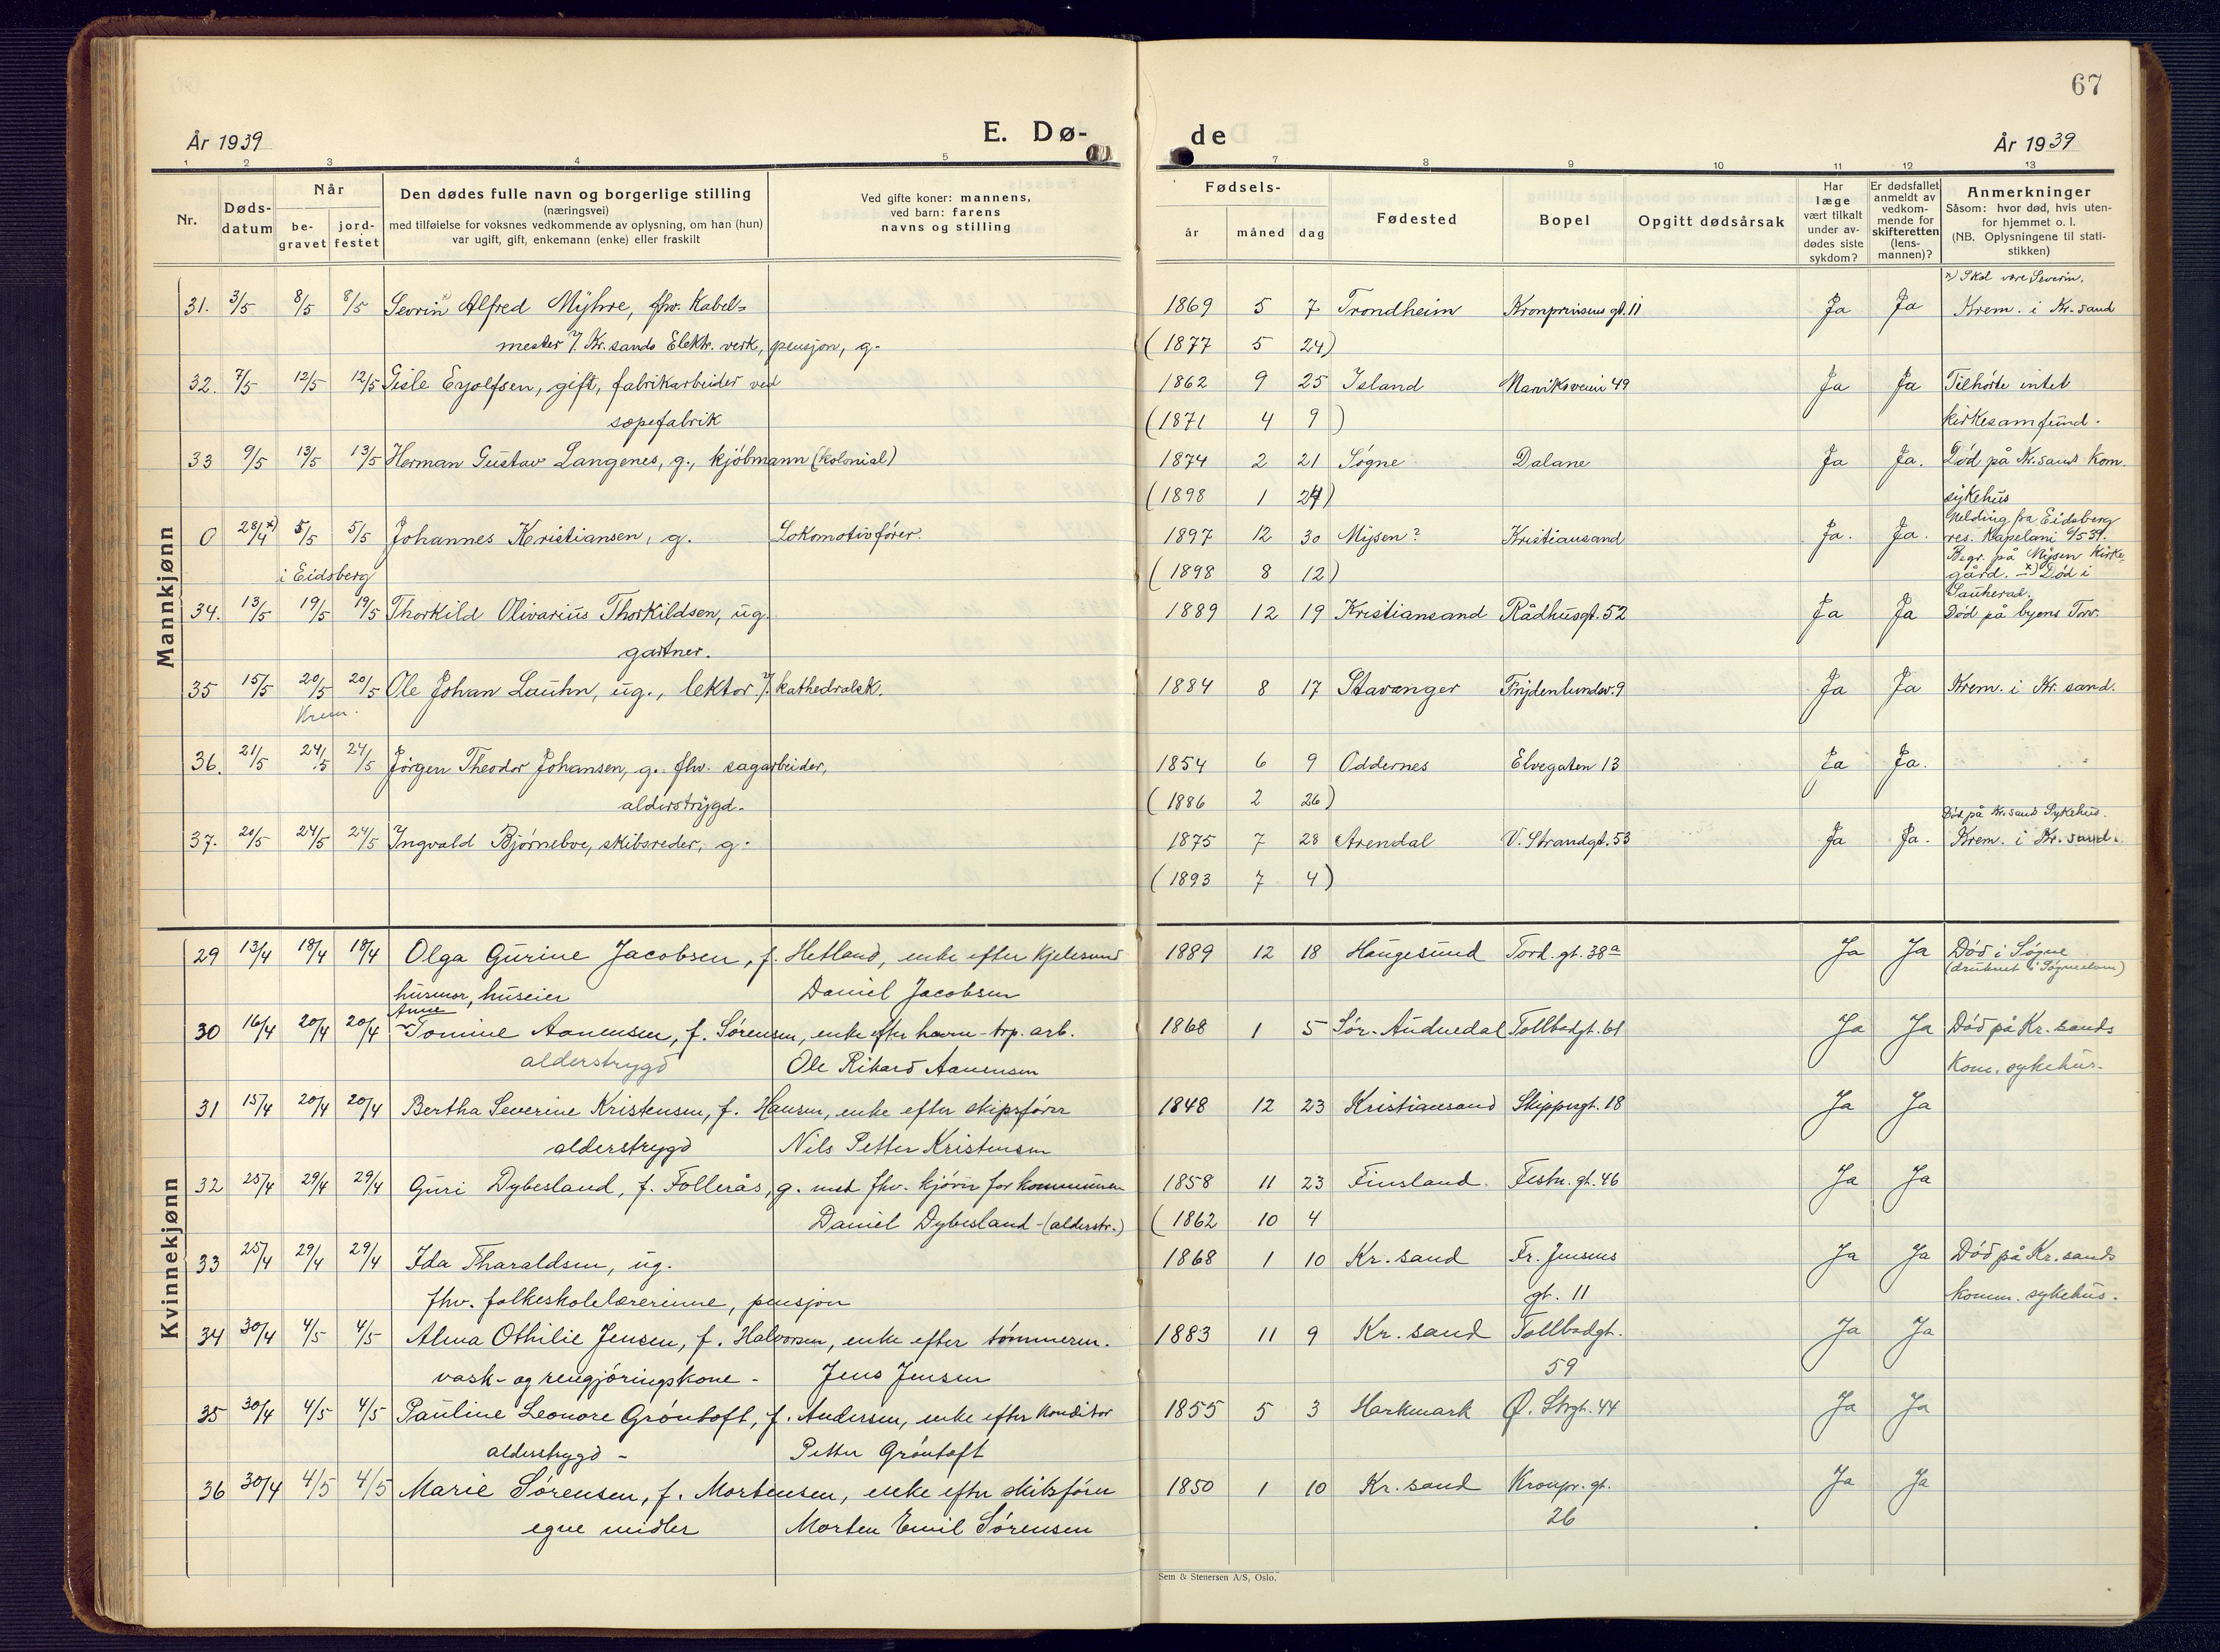 67
År 1939
E. Dø-
de
År 1939
1 2 3 4 5 7 8 9 10 11 12 13
Nr.
Døds-
datum
Når
be-
gravet
jord-
festet
Den dødes fulle navn og borgerlige stilling
(næringsvei)
med tilføielse for voksnes vedkommende av oplysning, om han (hun)
var ugift, gift, enkemann (enke) eller fraskilt
Ved gifte koner: mannens,
ved barn: farens
navns og stilling
Fødsels-
år måned dag
Fødested
Bopel
Opgitt dødsårsak
Har
læge
vært tilkalt
under av-
dødes siste
sykdom?
Er dødsfallet
anmeldt av
vedkom-
mende for
skifteretten
(lens-
mannen)?
Anmerkninger
Såsom: hvor død, hvis uten-
for hjemmet o. l.
(NB. Oplysningene til stati-
stikken)
Mannkjønn
x) Skal være Severin.
31. 3/5 8/5 8/5 Sevrin x Alfred Myhre, fhv. Kabel= 1869 5 7 Trondheim Kronprinsens gt. 11 Ja Ja Krem. i Kr.sand
mester v/. Kr.sands Elektr. verk, pensjon, g. (1877 5 24)
32. 7/5 12/5 12/5 Gisle Eyolfsen, gift, fabrikarbeider ved 1862 9 25 Island Marviksveien 49 Ja Ja Tilhørte intet
sæpefabrik (1871 4 9) kirkesamfund.
33 9/5 13/5 13/5 Herman Gustav Langenes, g., kjøbmann (kolonial) 1874 2 21 Søgne Dalane Ja Ja. Død på Kr.sand Kom.
(1898 1 24) sykehus
0 28/4 x) 5/5 5/5 Johannes Kristiansen, g. Lokomotivfører. 1897 12 30 Mysen? Kristiansand Ja. Ja. Melding fra Eidsberg
res. Kapelani 6/5 39.
Begr. på Mysen Kirke-
i Eidsberg (1898 8 12) gård. x) Død i
Sauherad.
34. 13/5 19/5 19/5 Thorkild Olivarius Thorkildsen, ug. 1889 12 19 Kristiansand Rådhusgt. 52 Ja Ja Død på byens Torv.
gartner.
35 15/5 20/5 20/5 Ole Johan Lauhn, ug., lektor v/. kathedralsk. 1884 8 17 Stavanger Frydenlundsv. 9 Ja Ja Krem. i Kr. sand.
Krem.
36. 21/5 24/5 24/5 Jörgen Theodor Johansen, g. fhv. sagarbeider, 1854 6 9 Oddernes Elvegaten 13 Ja Ja.
alderstrygd. (1886 2 26)
Død på Kr.sand Sykehus.
37. 20/5 24/5 24/5 Ingvald Bjørneboe, skibsreder, g. 1875 7 28 Arendal V. Strandgt. 53 Ja Ja. Krem. i Kr. sand.
(1893 7 4)
Kvinnekjønn
29 13/4 18/4 18/4 Olga Gurine Jacobsen, f. Hetland, enke efter Kjelesmed 1889 12 18 Haugesund Tord. gt. 38a Ja Ja Død i Søgne
(druknet i Søgneelven)
husmor, huseier Daniel Jacobsen
Anne
30 16/4 20/4 20/4 Tomine Aanensen, f. Sørensen, enke efter havne-trp. arb. 1868 1 5 Sør-Audnedal Tollbodgt. 61 Ja Ja Død på Kr. sands
alderstrygd Ole Rikard Aanensen Kom. sykehus.
31 15/4 20/4 20/4 Bertha Severine Kristensen, f. Hansen, enke efter skipsfører 1848 12 23 Kristiansand Skippergt. 18 Ja Ja
alderstrygd Nils Petter Kristensen
32 25/4 29/4 29/4 Guri Dybesland, f. Follerås, g. med fhv. kjører for kommunen 1858 11 23 Finsland Festn. gt. 46 Ja Ja
Daniel Dybesland - (alderstr.) (1862 10 4
33 25/4 29/4 29/4 Ida Tharaldsen, ug. 1868 1 10 Kr. sand Fr. Jensens Ja Ja Død på Kr. sands
fhv. folkeskolelærerinne, pensjon gt. 11 komm. sykehus.
34 30/4 4/5 4/5 Alma Othilie Jensen, f. Halvorsen, enke efter tømmerm. 1883 11 9 Kr. sand Tollbodgt. Ja Ja
vask- og rengjøringskone - Jens Jensen 59
35 30/4 4/5 4/5 Pauline Leonore Grøntoft, f. Andersen, enke efter Konditor 1855 5 3 Harkmark Ø. Strgt. 44 Ja Ja
alderstrygd - Petter Grøntoft
36 30/4 4/5 4/5 Marie Sørensen, f. Mortensen, enke efter skibsfører 1850 1 10 Kr. sand Kronpr. gt. Ja Ja
egne midler Morten Emil Sørensen 26
Sem & Stenersen A/S, Oslo.